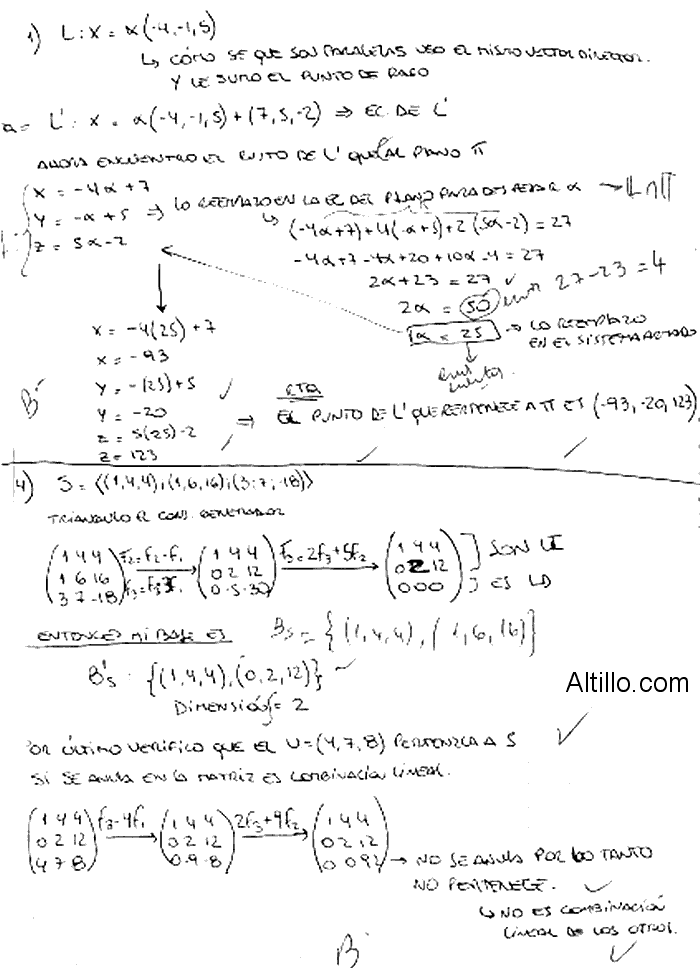 1) L: X = α(-4,-1,5)
↳ CÓMO SE QUE SON PARALELAS USO EL MISMO VECTOR DIRECTOR.
Y LE SUMO EL PUNTO DE PASO
L': X = α(-4,-1,5) + (7,5,-2) ⇒ EC. DE L'
AHORA ENCUENTRO EL PUNTO DE L' AL PLANO π
X = -4α+7
Y = -α+5 ⇒ LO REEMPLAZO EN LA EC DEL PLANO PARA DESPEJAR α → L∩π
Z = 5α-2
(-4α+7)+4(-α+5)+2(5α-2) = 27
-4α+7-4α+20+10α-4 = 27
2α+23 = 27 ✓
2α = 50 27-23 = 4
α = 25 → LO REEMPLAZO
EN EL SISTEMA
X = -4(25)+7
X = -93
Y = -(25)+5 ✓
Y = -20
Z = 5(25)-2
Z = 123
B⁻
RTA
⇒ EL PUNTO DE L' QUE PERTENECE A π ES (-93,-20,123)
4) S = ⟨(1,4,4);(1,6,16);(3;7;-18)⟩
TRIANGULO EL CONJ. GENERADOR
(1 4 4 F2=F2-F1 (1 4 4 F3=2F3+5F2 (1 4 4 ] SON LI
1 6 16 0 2 12 0 2 12
3 7 -18) 0 -5 -30) 0 0 0) } ES LD
ENTONCES MI BASE ES Bs = {(1,4,4), (1,6,16)}
B's = {(1,4,4),(0,2,12)} ✓
DIMENSIÓN = 2
Altillo.com
POR ÚLTIMO VERIFICO QUE EL U=(4,7,8) PERTENEZCA A S ✓
SI SE ANULA EN LA MATRIZ ES COMBINACIÓN LINEAL.
(1 4 4 f3-4f1 (1 4 4 2f3+9f2 (1 4 4
0 2 12 0 2 12 0 2 12
4 7 8) 0 -9 -8) 0 0 92) → NO SE ANULA POR LO TANTO
NO PERTENECE. ✓
↳ NO ES COMBINACIÓN
LINEAL DE LOS OTROS.
✓
B